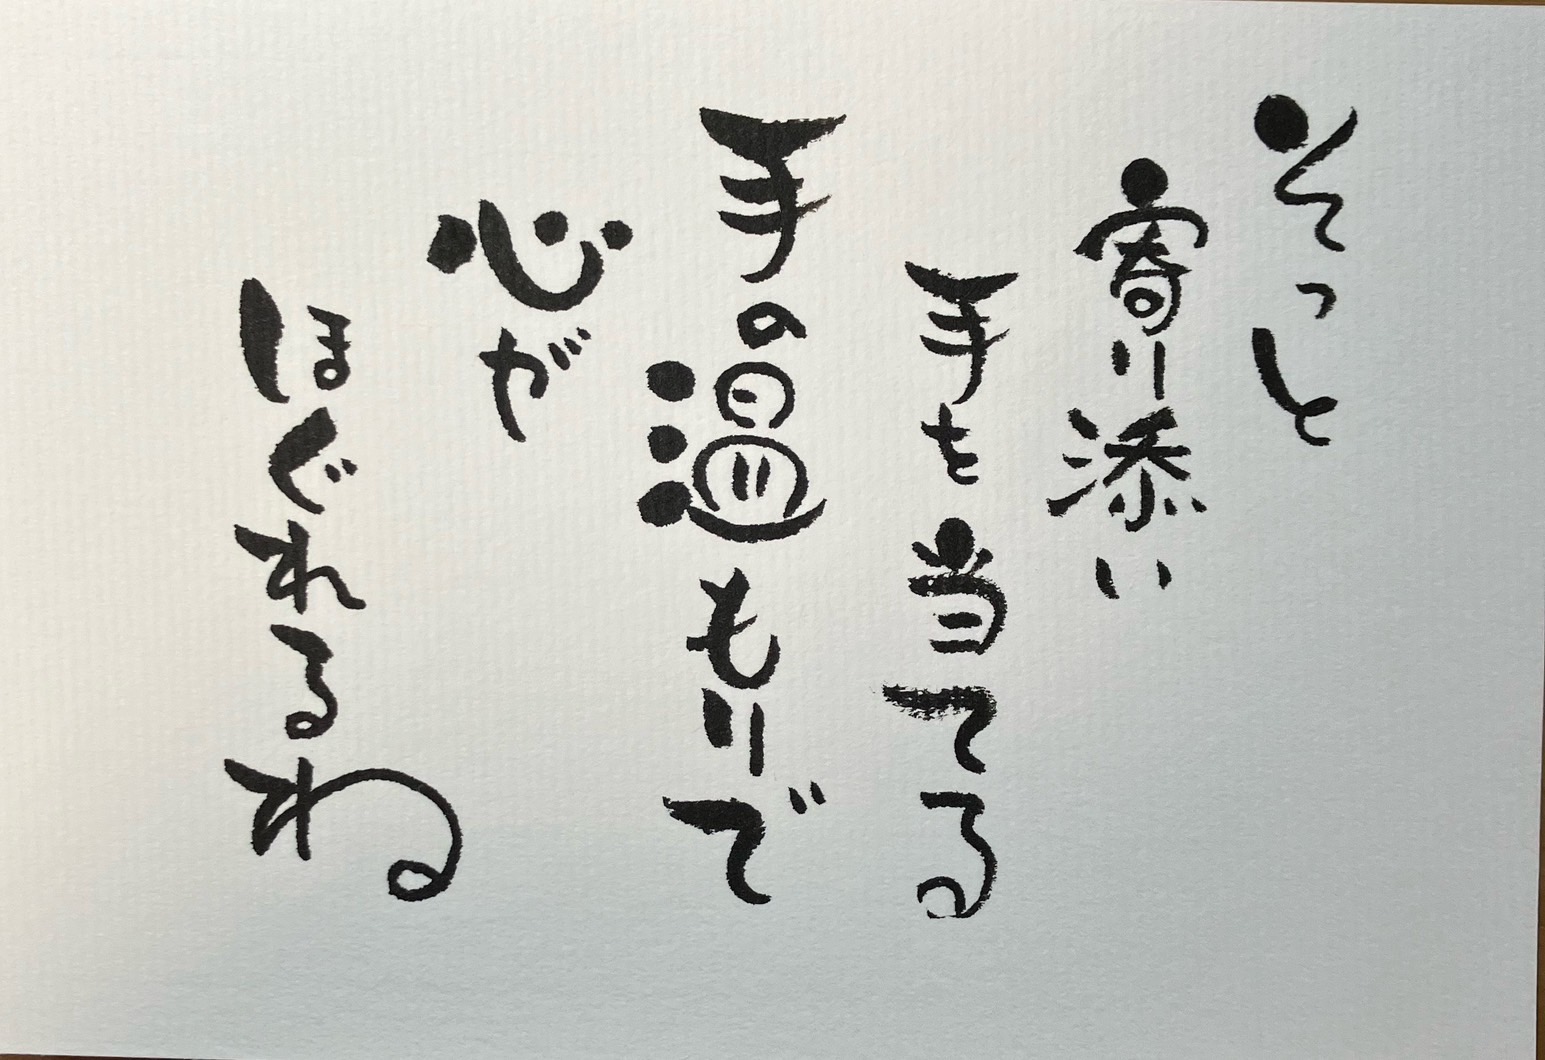 そっと
寄り添い
手を当てる
手の温もりで
心が
ほぐれるね